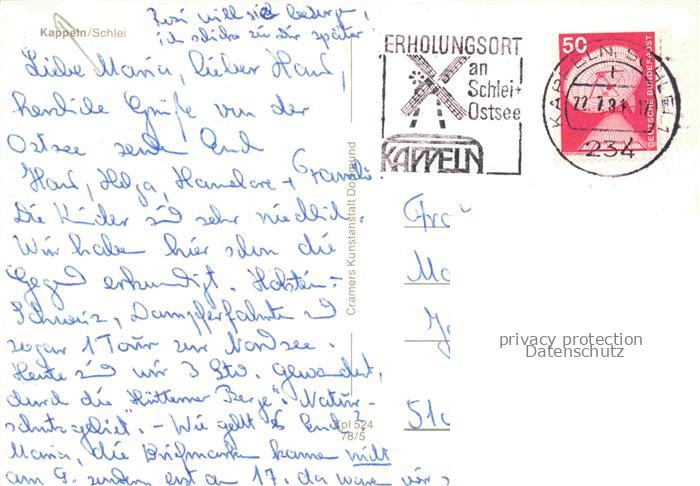 Rosi will sie besorgen,
ich schicke sie Dir später
Kappeln/Schlei
Liebe Maria, lieber Hans,
herzliche Grüße von der
Ostsee senden Euch
Hans, Helga, Hannelore +
Die Kinder sind sehr niedlich.
Wir haben hier schon die
Gegend erkundigt. Holstein-
Schweiz, Dampferfahrten und
sogar 1 Tour zur Nordsee.
Heute sind wir 3 Std. gewandert,
durch die "Hüttener Berge" Natur-
schutzgebiet". - Wie geht es Euch?
Maria, die Briefmarken kamen nicht
am 9. sondern erst am 17. da waren wir
Cramers Kunstanstalt Dortmund
Kpl 524
78/5
ERHOLUNGSORT
an
Schlei+
Ostsee
KAPPELN
KAPPELN, SCHLEI 1
22.7.81-17
234
50
DEUTSCHE BUNDESPOST
Fra
Ma
510
privacy protection
Datenschutz